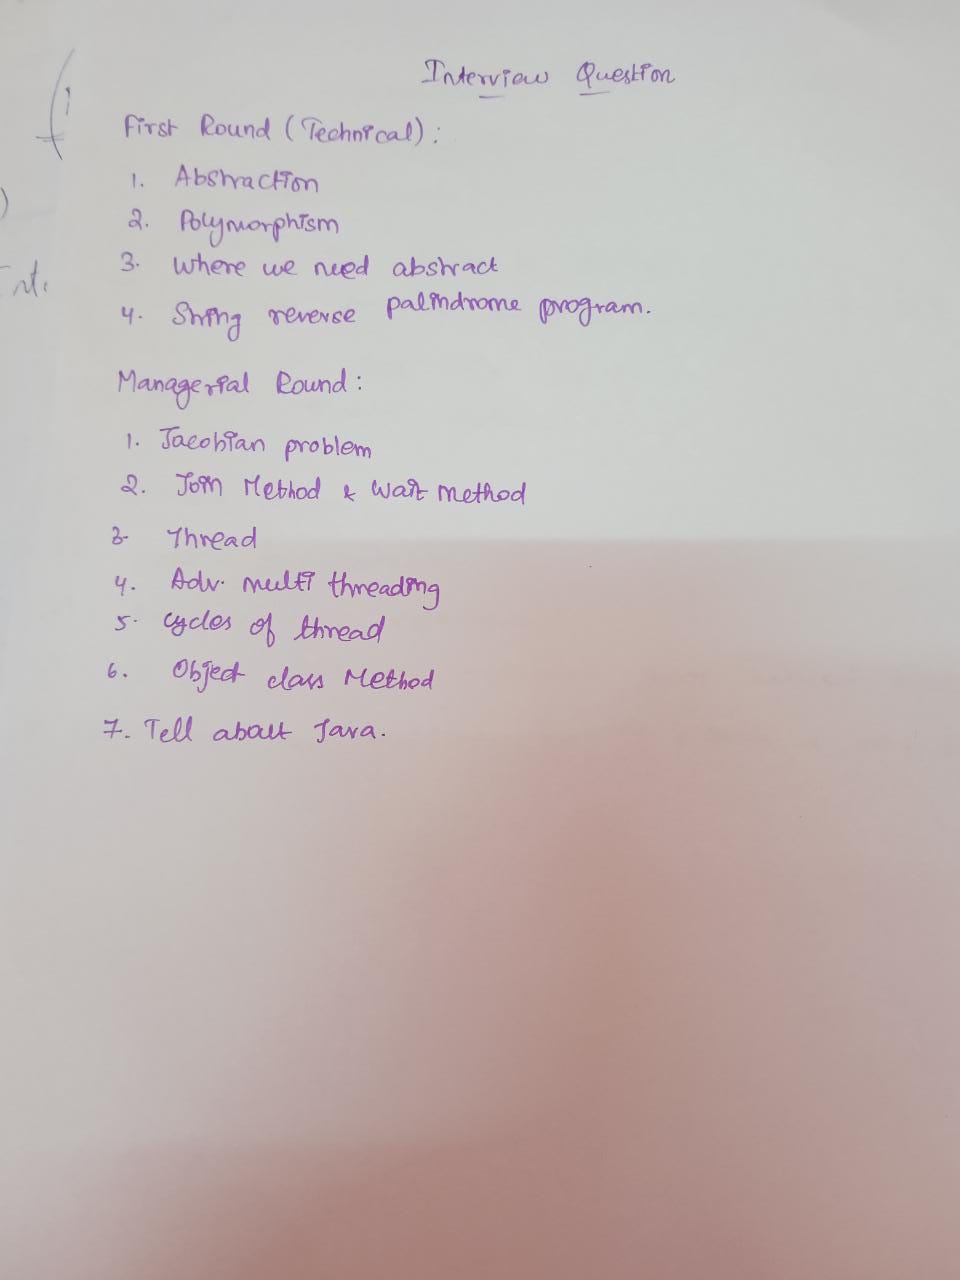 Interview Question
First Round (Technical):
1. Abstraction
2. Polymorphism
3. Where we need abstract
4. String reverse palindrome program.
Managerial Round:
1. Jacobian problem
2. Join Method & Wait method
3. Thread
4. Adv. multi threading
5. cycles of thread
6. Object class Method
7. Tell about Java.